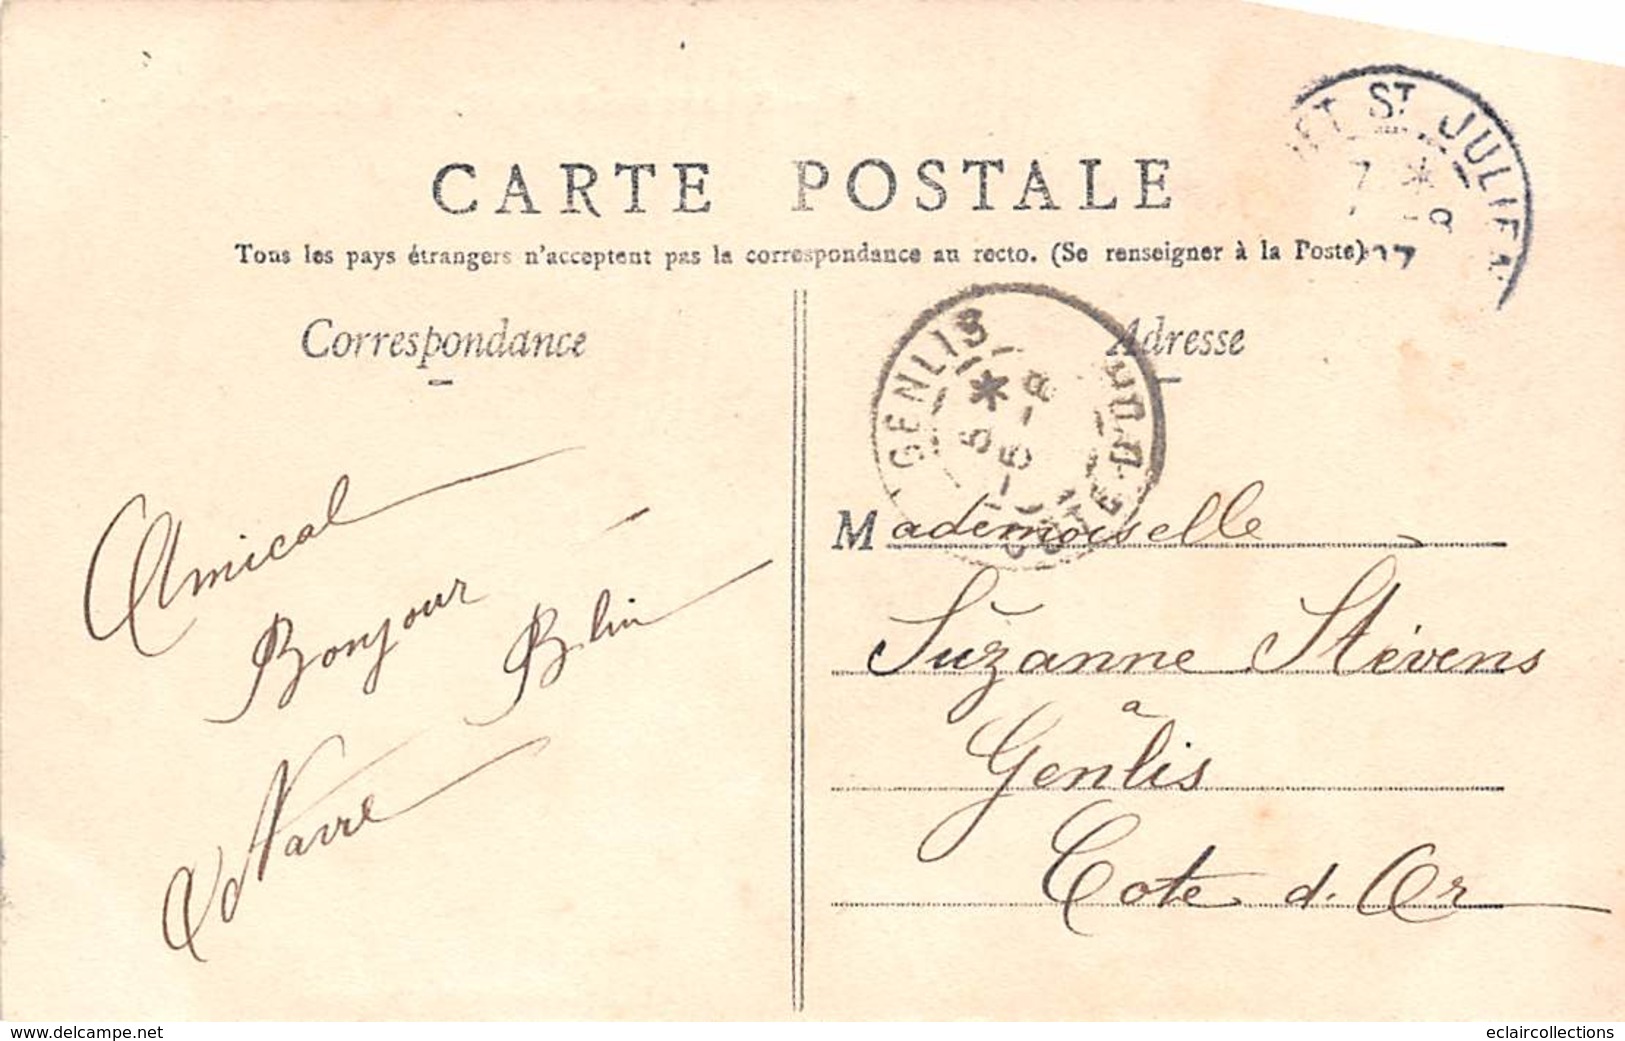 CARTE POSTALE
Tous les pays étrangers n'acceptent pas la correspondance au recto. (Se renseigner à la Poste)
ST JULIEN
7 * 8
07
Correspondance
Adresse
GENLIS
CÔTE-D'OR
Amical
Bonjour
Blin
Navre
Mademoiselle
Suzanne Stévens
a
Genlis
Cote d. Or
www.delcampe.net
eclaircollections